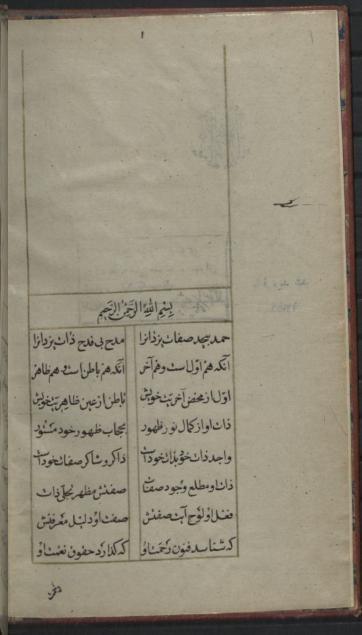 بسم الله الرحمن الرحیم
حمد بیحد صفات یزدانرا مدح بی قدح ذات یزدانرا
آنکه هم اولست و هم آخر آنکه هم باطن است هم ظاهر
اول از محض آخریت خویش باطن از عین ظاهریت خویش
ذات او از کمال نور ظهور بحجاب ظهور خود مستور
واجد ذات خود بذات خود است ذاکر و شاکر صفات خود است
ذات او مطلع وجود صفات صفتش مظهر تجلی ذات
فعل او لوح آیت صفتش صفت او دلیل معرفتش
که شناسد فنون رحمت او که گذارد حقوق نعمت او